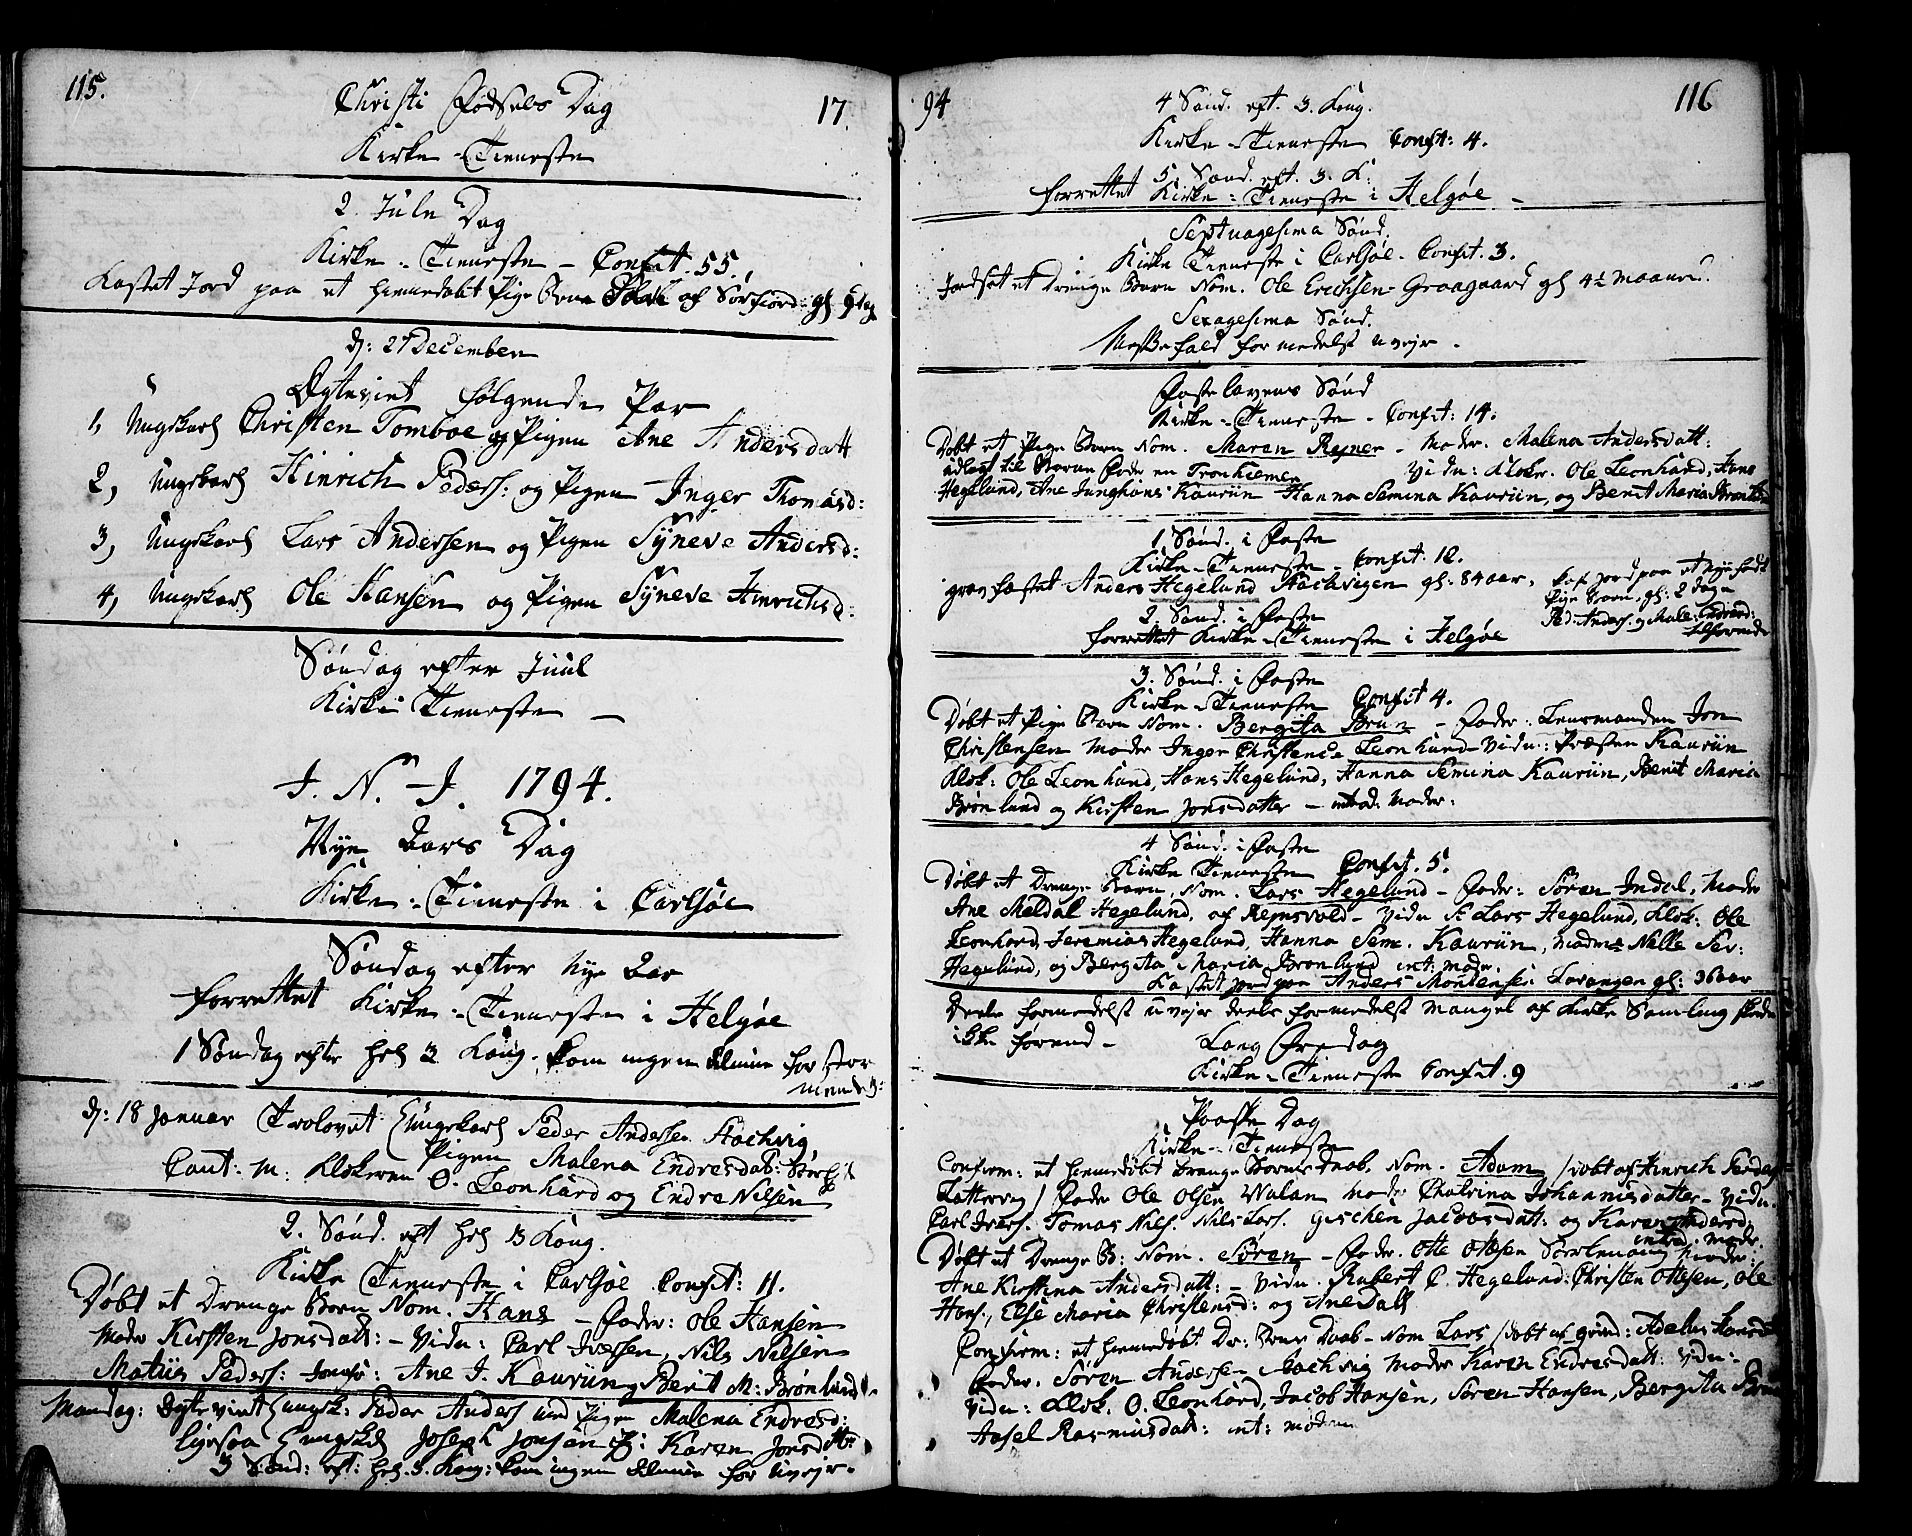 115.
Christi Fødsels Dag
17.
Kirke-Tieneste
2. Jule Dag
Kirke-Tieneste - Confit. 55.
Kastet Jord paa et hiemedøbt Pige Barn af Sørfiord gl 9 dag
d: 27 December
Ægteviet følgende Par
1, Ungkarl Christen Tomboe og Pigen Ane Andersdatt
2, Ungkarl Hinrich Peders: og Pigen Inger Thomasd:
3, Ungkarl Lars Andersen og Pigen Syneve Andersd:
4, Ungkarl Ole Hansen og Pigen Syneve Hinrichsd:
Søndag efter Juul
Kirke Tieneste -
J. N. J. 1794.
Nye Aars Dag
Kirke-Tieneste i Carlsøe
Søndag efter Nye Aar
forrettet Kirke-Tieneste i Helgøe
1 Søndag efter hel 3 Kong. kom ingen Almue for stor
d: 18 Januar Trolovet Ungkarl Peder Andersen Hachvig
Pigen Malena Endresdatt:
Caut: M: Klokeren O. Leonhard og Endre Nilsen
2. Sønd. eft hel 3 Kong.
Kirke Tieneste i Carlsøe Confit: 11.
Døbt et Drenge Barn Nom. Hans - Fader: Ole Hansen
Moder Kirsten Jonsdatt: - Vidn: Carl Iversen, Nils Nilsen
Matius Peders: Jomfr: Ane J. Kaurin, Berit M: Brønlund
Mandag: Ægteviet Ungk: Peder Anders med Pigen Malena Endresd:
Ligesaa Ungkl Joseph Jonsen P: Karen Jonsdatt:
3 Sønd: eft: hel. 3. Kong: kom ingen Almue for Uvejr.
94
116
4 Sønd. eft. 3. Kong.
Kirke-Tieneste Confit: 4.
5. Sønd. eft. 3. K:
forrettet Kirke-Tieneste i Helgøe -
Septuagesima Sønd.
Kirke Tieneste i Carlsøe. Confit. 3.
Jordset et Drenge Barn Nom. Ole Erichsen Graagaard gl 4½ Maaned.
Sexagesima Sønd.
Messefald formedelst uvejr.
Fastelavens Sønd
Kirke-Tieneste - Confit: 14.
Døbt et Pige Barn Nom. Maren Rejner - Moder. Malena Andersdatt:
udlagt til Barne Fader en Tronhiemer Vidn: Kloker. Ole Leonhard, Hans
Hegelund, Ane Junghans Kaurin Hanna Semina Kaurin, og Berit Maria Brønlun
1 Sønd. i Faste
Kirke-Tieneste - Confit: 12.
gravfæstet Anders Hegelund Hachvigen gl: 84 aar.
Kast Jord paa et Nyefødt
Pige Barn, gl: 2 Dage
Ped: Anders. og Male: Endresd:
2. Sønd. i Faste
forrettet Kirke-Tieneste i Helgøe
3. Sønd. i Faste
Kirke-Tieneste Confit 4.
Døbt et Pige Barn Nom. Bergita Brun - Fader: Lensmanden Jon
Christensen Moder Inger Christence Leonhard Vidn: Præsten Kaurin
Klok: Ole Leonhard, Hans Hegelund, Hanna Semina Kaurin, Berit Maria
Brønlund og Kirsten Jonsdatter - introd: Moder:
4 Sønd. i Faste
Kirke Tieneste Confit. 5.
Døbt et Drenge Barn, Nom. Lars Hegelund - Fader: Søren Indal, Moder
Ane Meldal Hegelund, af Rejnsvold - Vidn Lars Hegelund, Klok: Ole
Leonhard, Jeremias Hegelund, Hanna Sem. Kaurin, Madme Nille Sev:
Hegelund, og Bergita Maria Brønlund int: Moder.
Kastet Jord paa Anders Mortensen Lavangen gl: 36 aar
Deels formedelst uvejr deels formedelst Mangel af Kirke Samling skede
ikke førend -
Lang Fredag
Kirke-Tieneste Confit. 9
Paaske Dag
Kirke-Tieneste
Confirm: et hiemedøbt Drenge Barns Daab, Nom. Adam /døbt af Hinrich
Lattervig/ Fader Ole Olsen Walan Moder Chatrina Johannisdatter - Vidn.
Carl Ivers. Tomas Nils. Nils Lars. Gischen Jacobsdatt: og Karen Andersd.
introd: Moder:
Døbt et Drenge B: Nom. Søren - Fader. Otte Ottesen Moder:
Ane Kirstina Andersdatt: - Vidn. Rubert C. Hegelund: Christen Ottesen, Ole
Hans., Else Maria Christensd: og Ane Datt
Confirm: et hiemedøbt Dr: Barns Daab - Nom Lars /døbt af
Fader. Søren Andersen Hachvig Moder Karen Endresdatt: Vidn:
Vidn: Klok. O. Leonhard, Jacob Hansen, Søren Hansen, Bergita
Aasel Rasmusdatt: int: Moder